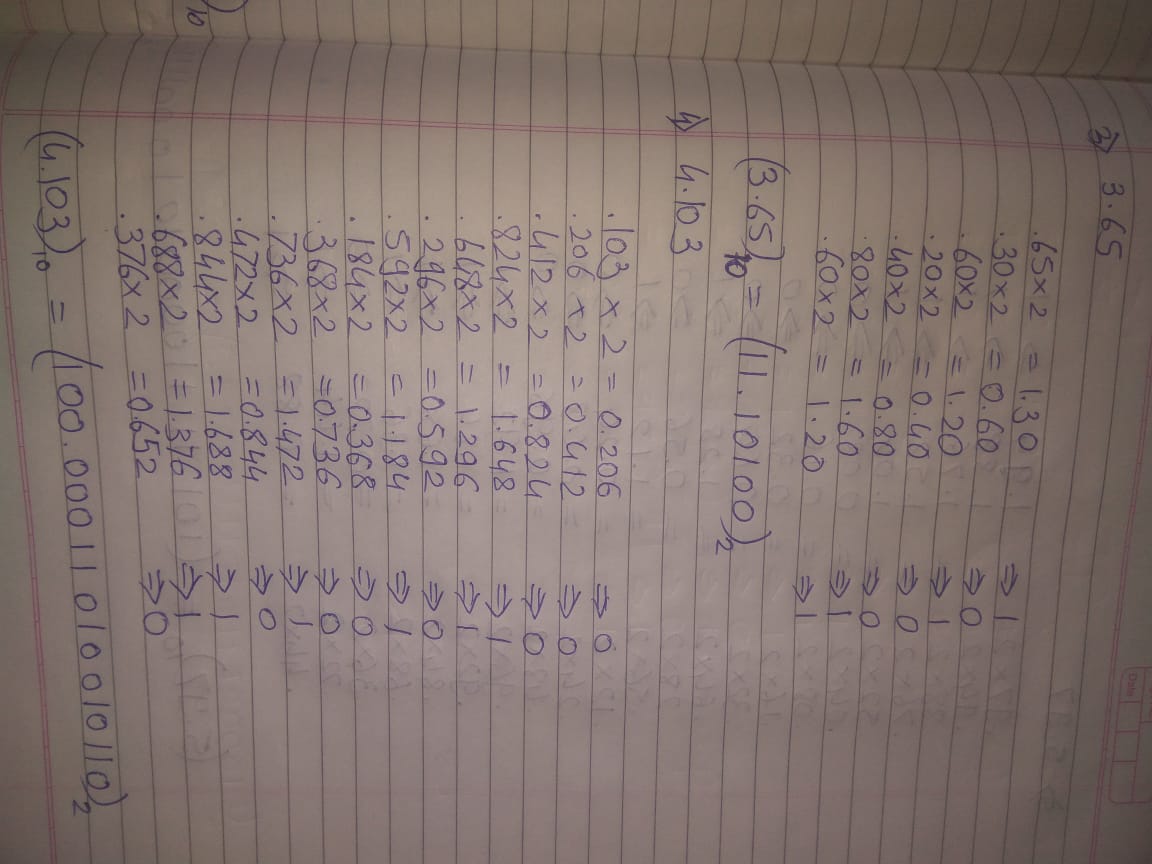 3) 3.65
.65x2 = 1.30 ⇒ 1
.30x2 = 0.60 ⇒ 0
.60x2 = 1.20 ⇒ 1
.20x2 = 0.40 ⇒ 0
.40x2 = 0.80 ⇒ 0
.80x2 = 1.60 ⇒ 1
.60x2 = 1.20 ⇒ 1
(3.65)10 = (11.10100)2
4) 4.103
.103 x 2 = 0.206 ⇒ 0
.206 x2 = 0.412 ⇒ 0
.412 x2 = 0.824 ⇒ 0
.824 x2 = 1.648 ⇒ 1
.648x2 = 1.296 ⇒ 1
.296x2 = 0.592 ⇒ 0
.592x2 = 1.184 ⇒ 1
.184x2 = 0.368 ⇒ 0
.368x2 = 0.736 ⇒ 0
.736x2 = 1.472 ⇒ 1
.472x2 = 0.844 ⇒ 0
.844x2 = 1.688 ⇒ 1
.688x2 = 1.376 ⇒ 1
.376x2 = 0.652 ⇒ 0
(4.103)10 = (100.00011010010110)2
Date